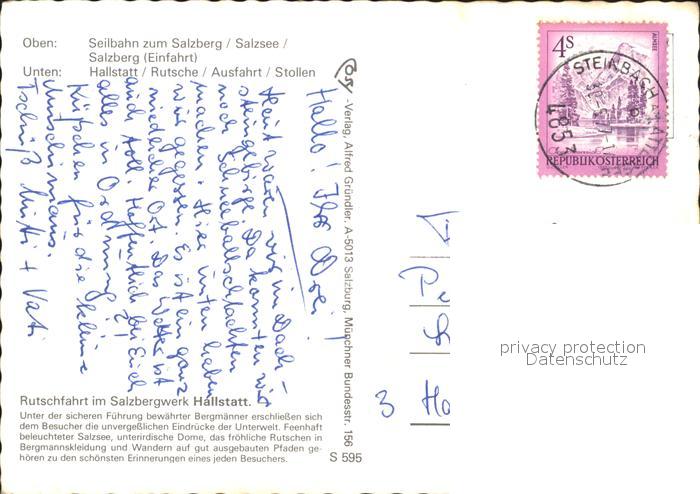 Oben: Seilbahn zum Salzberg / Salzsee /
Salzberg (Einfahrt)
Unten: Hallstatt / Rutsche / Ausfahrt / Stollen
Hallo! Ihr Drei!
Heut waren wir im Dach-
steingebirge. Da konnten wir
noch Schneeballschlachten
machen. Hier unten haben
wir gegessen. Es ist ein ganz
niedlicher Ort. Das Wetter ist
auch toll. Hoffentlich bei Euch
alles in Ordnung?!
Küßchen für die kleine
Tschüß Mutti + Vati
Cosy-Verlag, Alfred Gründler, A-5013 Salzburg, Münchner Bundesstr. 156
Rutschfahrt im Salzbergwerk Hallstatt.
Unter der sicheren Führung bewährter Bergmänner erschließen sich
dem Besucher die unvergeßlichen Eindrücke der Unterwelt. Feenhaft
beleuchteter Salzsee, unterirdische Dome, das fröhliche Rutschen in
Bergmannskleidung und Wandern auf gut ausgebauten Pfaden ge-
hören zu den schönsten Erinnerungen eines jeden Besuchers.
S 595
4S
ALMSEE
REPUBLIK ÖSTERREICH
STEINBACH AM ATTERSEE
4853
privacy protection
Datenschutz
3 Ho